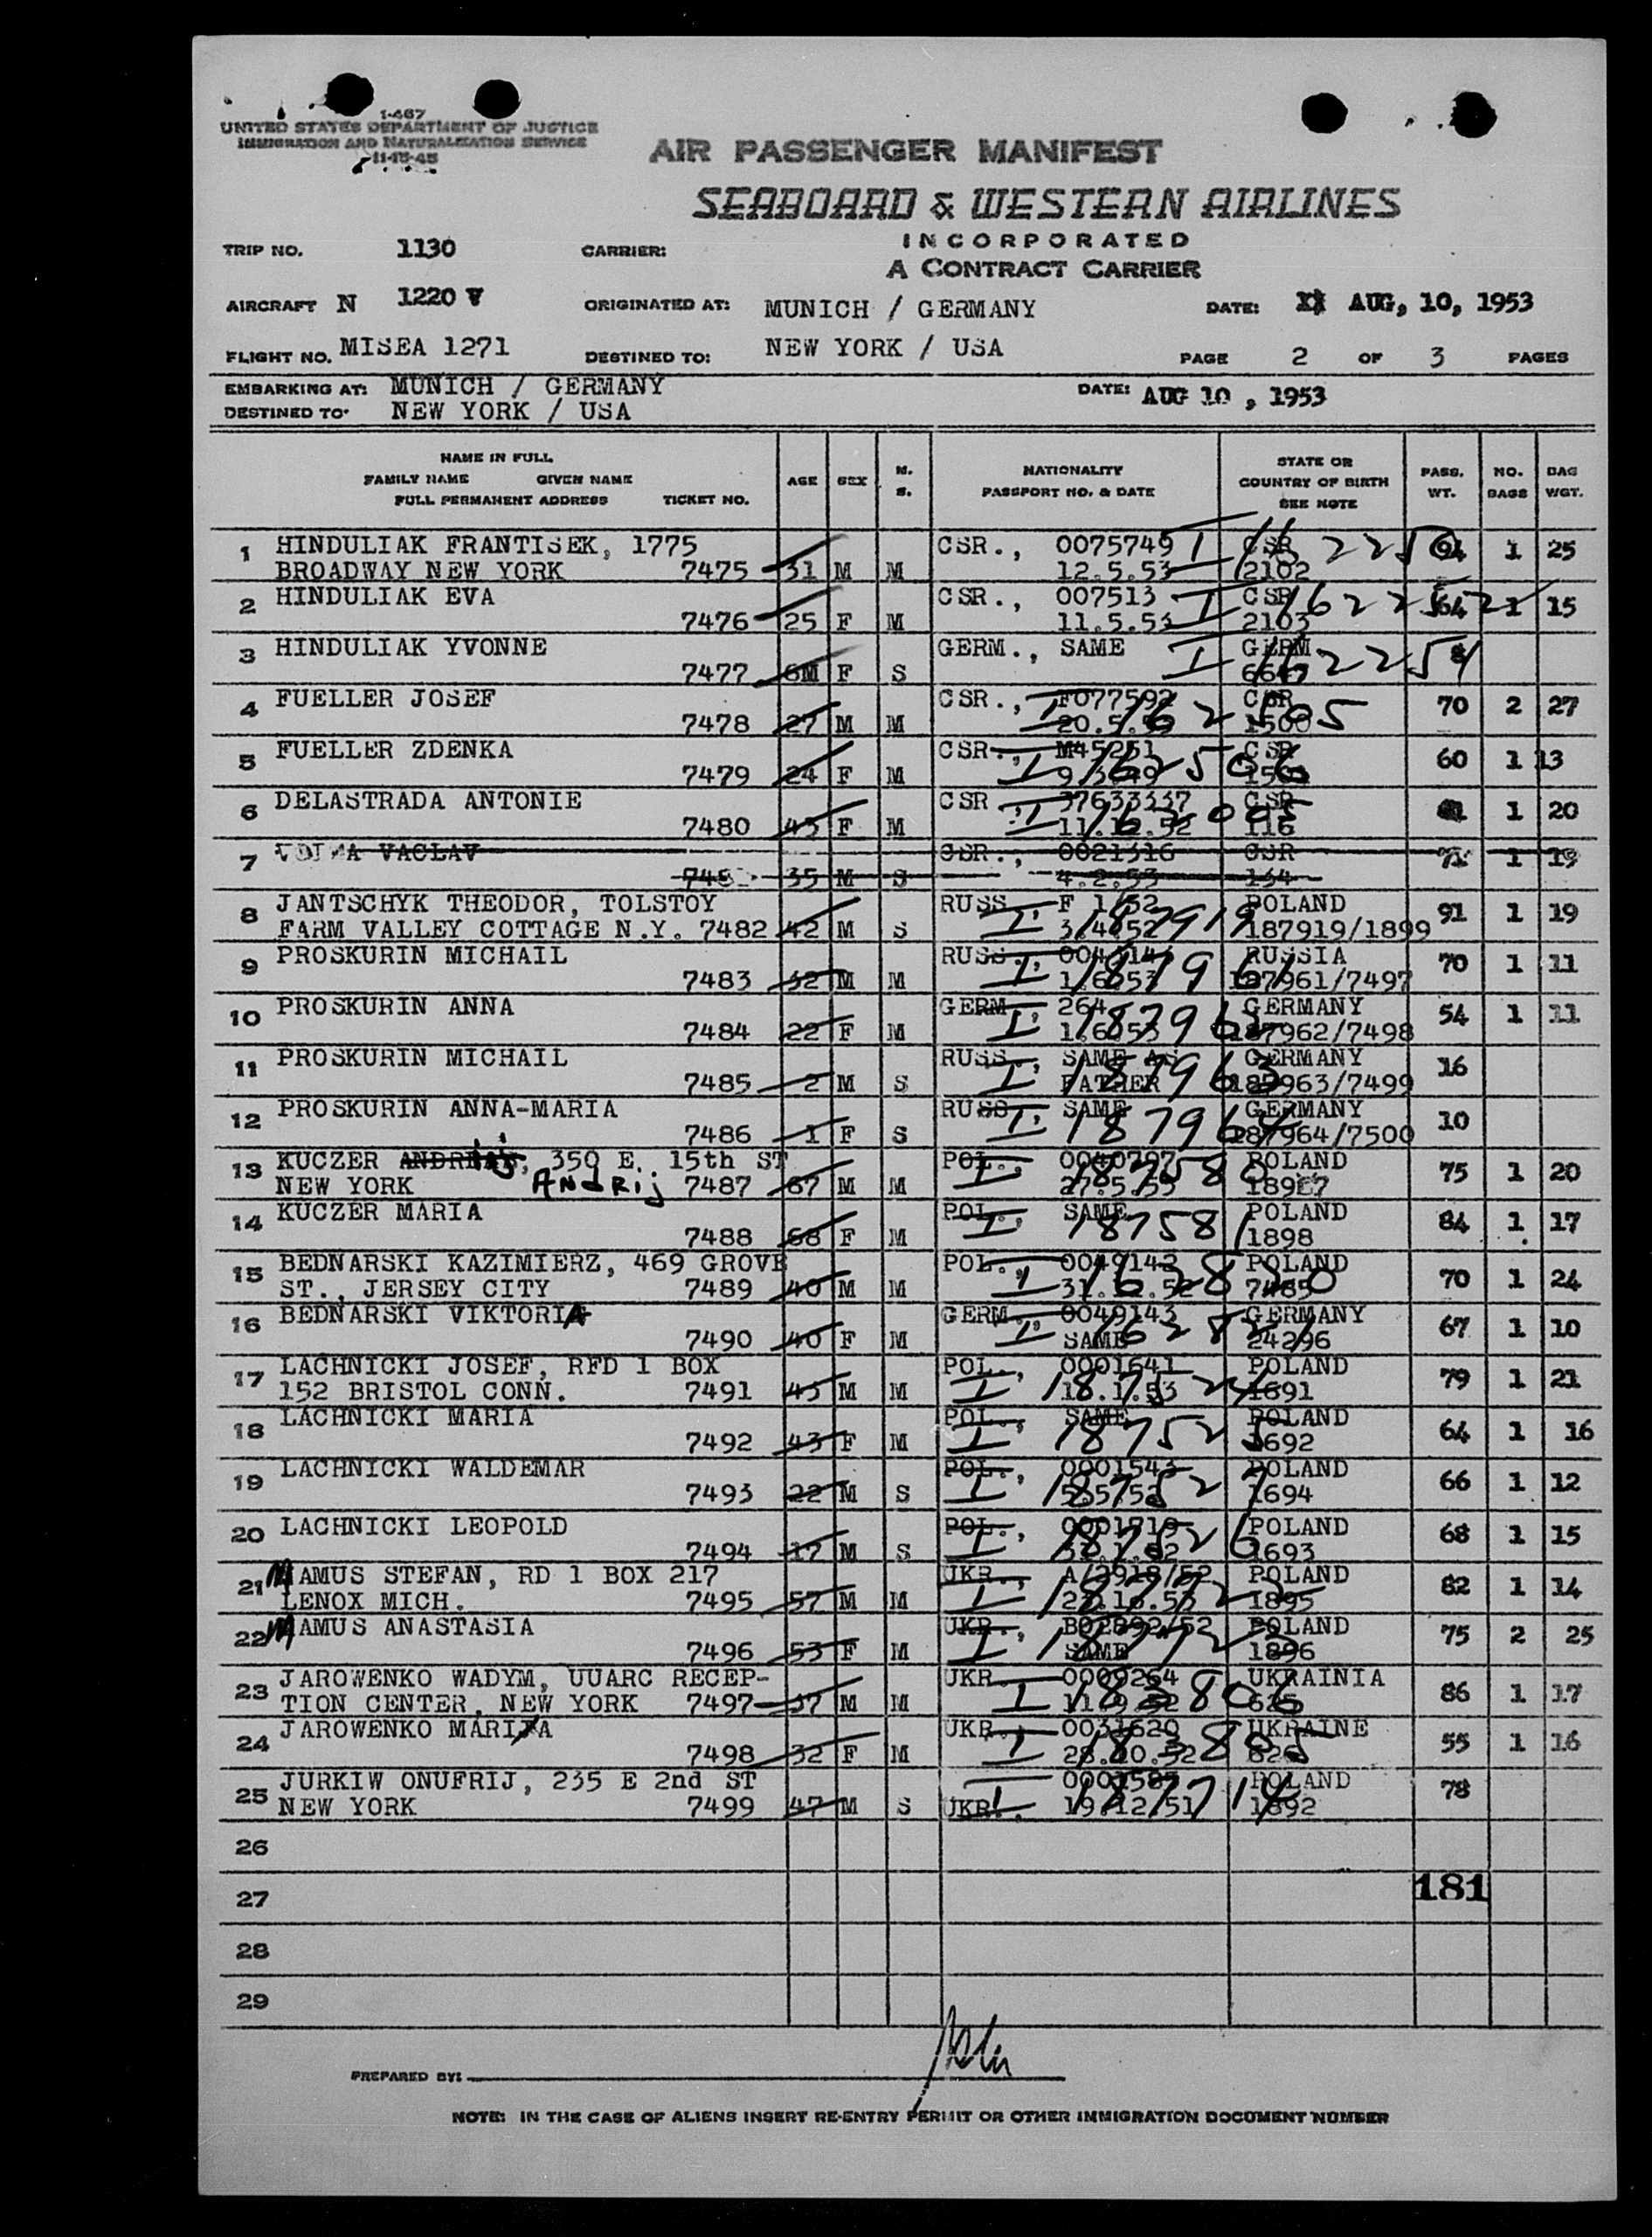 I-467
UNITED STATES DEPARTMENT OF JUSTICE
IMMIGRATION AND NATURALIZATION SERVICE
11-15-45
AIR PASSENGER MANIFEST
SEABOARD & WESTERN AIRLINES
INCORPORATED
A CONTRACT CARRIER
TRIP NO. 1130 CARRIER:
AIRCRAFT N 1220 V ORIGINATED AT: MUNICH / GERMANY DATE: AUG, 10, 1953
FLIGHT NO. MISEA 1271 DESTINED TO: NEW YORK / USA PAGE 2 OF 3 PAGES
EMBARKING AT: MUNICH / GERMANY DATE: AUG 10 , 1953
DESTINED TO: NEW YORK / USA
NAME IN FULL
FAMILY NAME GIVEN NAME
FULL PERMANENT ADDRESS TICKET NO.
AGE SEX M. S.
NATIONALITY
PASSPORT NO. & DATE
STATE OR
COUNTRY OF BIRTH
SEE NOTE
PASS. WT. NO. BAGS BAG WGT.
1 HINDULIAK FRANTISEK, 1775 CSR., 0075749 I CSR 1 25
BROADWAY NEW YORK 7475 31 M M 12.5.53 2102
2 HINDULIAK EVA CSR., 007513 I CSR 64 1 15
7476 25 F M 11.5.53 2103
3 HINDULIAK YVONNE GERM., SAME I GERM 162254
7477 6M F S
4 FUELLER JOSEF CSR., F077592 I CSR 70 2 27
7478 27 M M 1500
5 FUELLER ZDENKA CSR., M45251 I CSR 60 1 13
7479 24 F M
6 DELASTRADA ANTONIE CSR ., 37633337 I CSR 1 20
7480 43 F M 11.12.52 116
7 VACLAV CSR., 0021316 CSR 1 19
35 M S 4.2.53 134
8 JANTSCHYK THEODOR, TOLSTOY RUSS I 187919 POLAND 91 1 19
FARM VALLEY COTTAGE N.Y. 7482 42 M S 187919/1899
9 PROSKURIN MICHAIL RUSS., I 187961 RUSSIA 70 1 11
7483 32 M M 187961/7497
10 PROSKURIN ANNA GERM., 264 I 187962 GERMANY 54 1 11
7484 22 F M 1.6.53 187962/7498
11 PROSKURIN MICHAIL RUSS., SAME AS I 187963 GERMANY 16
7485 2 M S FATHER 187963/7499
12 PROSKURIN ANNA-MARIA RUSS., SAME I 187964 GERMANY 10
7486 1 F S 187964/7500
13 KUCZER ANDREAS, 350 E. 15th ST POL., 0040797 I POLAND 75 1 20
NEW YORK Andrij 7487 67 M M 27.5.53
14 KUCZER MARIA POL., SAME I 187581 POLAND 84 1 17
7488 68 F M 1898
15 BEDNARSKI KAZIMIERZ, 469 GROVE POL., 0049142 I POLAND 70 1 24
ST., JERSEY CITY 7489 40 M M
16 BEDNARSKI VIKTORIA GERM., 0049143 I GERMANY 67 1 10
7490 40 F M SAME 24296
17 LACHNICKI JOSEF, RFD 1 BOX POL., 0001641 I 187524 POLAND 79 1 21
152 BRISTOL CONN. 7491 43 M M 1691
18 LACHNICKI MARIA POL., SAME I 187525 POLAND 64 1 16
7492 43 F M 1692
19 LACHNICKI WALDEMAR POL., 0001543 I 187527 POLAND 66 1 12
7493 22 M S 1694
20 LACHNICKI LEOPOLD POL., I 187526 POLAND 68 1 15
7494 17 M S 1693
21 MAMUS STEFAN, RD 1 BOX 217 UKR., I POLAND 82 1 14
LENOX MICH. 7495 57 M M 1895
22 MAMUS ANASTASIA UKR., I POLAND 75 2 25
7496 53 F M SAME 1896
23 JAROWENKO WADYM, UUARC RECEP- UKR., 0009264 I UKRAINIA 86 1 17
TION CENTER, NEW YORK 7497 37 M M 625
24 JAROWENKO MARIJA UKR., 0031620 I UKRAINE 55 1 16
7498 32 F M 28.10.52 626
25 JURKIW ONUFRIJ, 235 E 2nd ST I 187714 POLAND 78
NEW YORK 7499 47 M S UKR., 19.12/51 1892
26
27 181
28
29
PREPARED BY:
NOTE: IN THE CASE OF ALIENS INSERT RE-ENTRY PERMIT OR OTHER IMMIGRATION DOCUMENT NUMBER